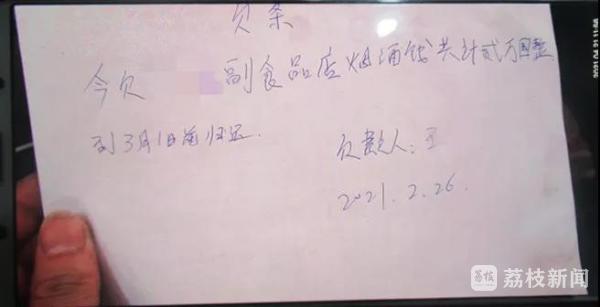 欠条
今欠 副食品店烟酒钱共计贰万圆整
到3月1日前归还.
欠款人：王
2021.2.26.
2021.04.21 11:56
荔枝 荔枝新闻